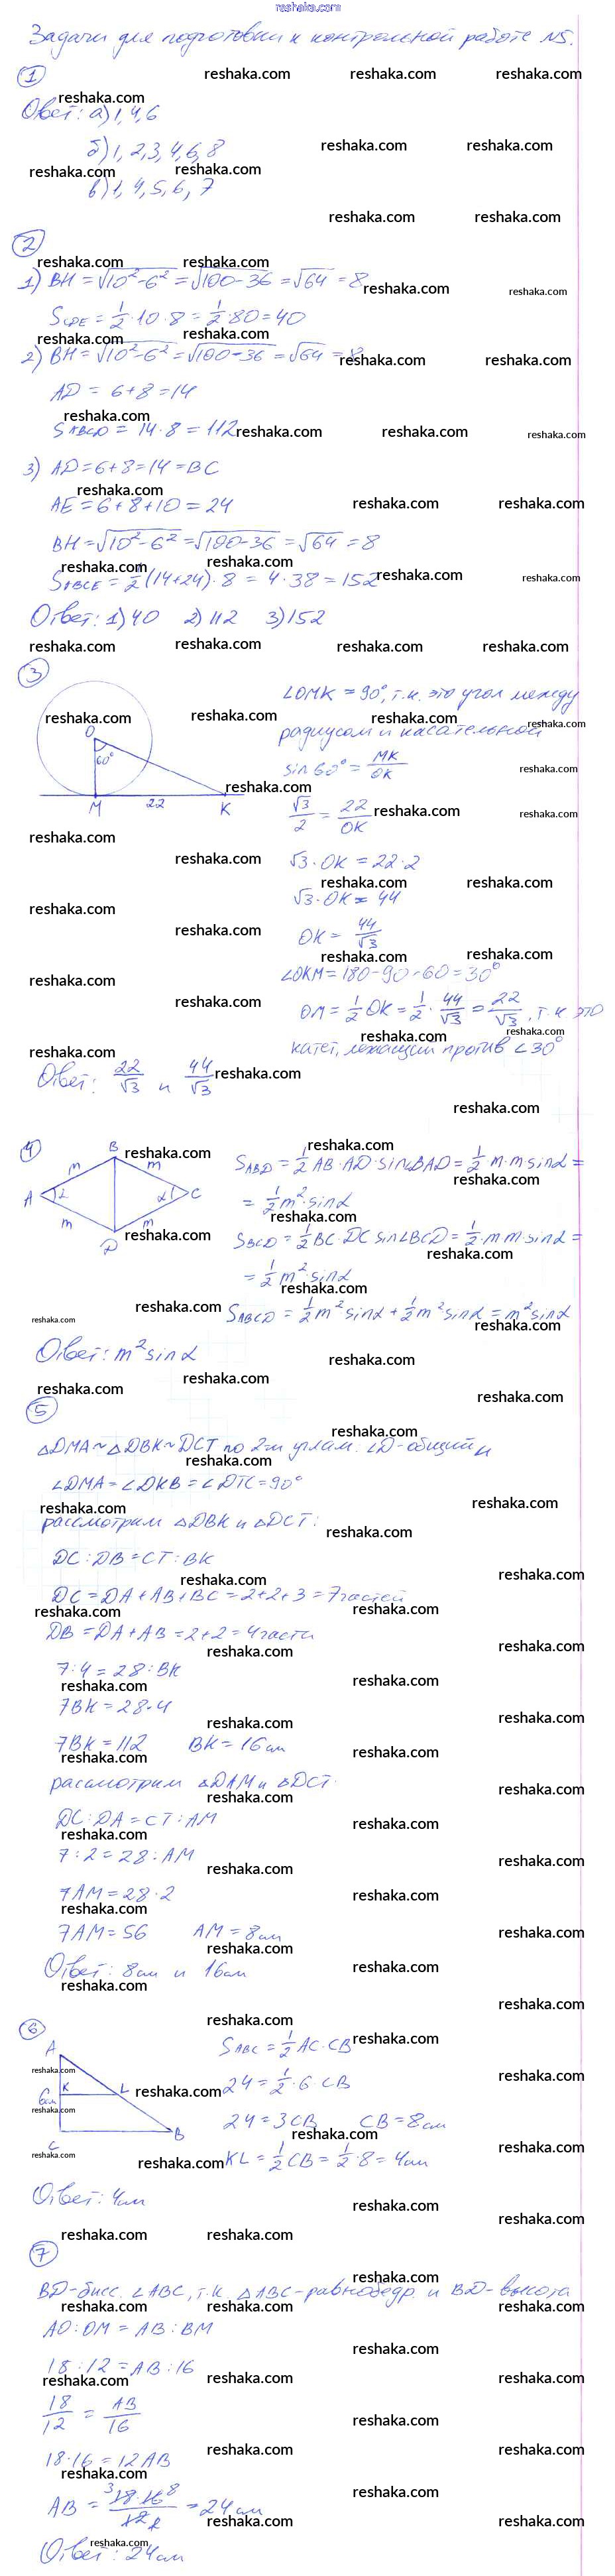 reshaka.com
Задачи для подготовки к контрольной работе №5.
1
Ответ: а) 1, 4, 6
б) 1, 2, 3, 4, 6, 8
в) 1, 4, 5, 6, 7
2
1) BH = √10²-6² = √100-36 = √64 = 8
S CDE = 1/2 · 10 · 8 = 1/2 · 80 = 40
2) BH = √10²-6² = √100-36 = √64 = 8
AD = 6+8 = 14
S ABCD = 14 · 8 = 112
3) AD = 6+8 = 14 = BC
AE = 6+8+10 = 24
BH = √10²-6² = √100-36 = √64 = 8
S ABCE = 1/2 (14+24) · 8 = 4 · 38 = 152
Ответ: 1) 40 2) 112 3) 152
3
O
60°
M 22 K
∠OMK = 90°, т.к. это угол между
радиусом и касательной
sin 60° = MK/OK
√3/2 = 22/OK
√3 · OK = 22 · 2
√3 · OK = 44
OK = 44/√3
∠OKM = 180-90-60 = 30°
OM = 1/2 OK = 1/2 · 44/√3 = 22/√3, т.к. это
катет, лежащий против ∠30°
Ответ: 22/√3 и 44/√3
4
A B C D
m m m m
α α
S ABD = 1/2 AB · AD · sin∠BAD = 1/2 m · m · sinα =
= 1/2 m² · sinα
S BCD = 1/2 BC · DC sin∠BCD = 1/2 · m · m · sinα =
= 1/2 m² · sinα
S ABCD = 1/2 m² sinα + 1/2 m² sinα = m² sinα
Ответ: m² sinα
5
△DMA ~ △DBK ~ DCT по 2-м углам: ∠D-общий и
∠DMA = ∠DKB = ∠DTC = 90°
рассмотрим △DBK и △DCT:
DC : DB = CT : BK
DC = DA + AB + BC = 2+2+3 = 7 частей
DB = DA + AB = 2+2 = 4 части
7 : 4 = 28 : BK
7BK = 28 · 4
7BK = 112 BK = 16 см
рассмотрим △DAM и △DCT.
DC : DA = CT : AM
7 : 2 = 28 : AM
7AM = 28 · 2
7AM = 56 AM = 8 см
Ответ: 8 см и 16 см
6
A
K L
6 см
C B
S ABC = 1/2 AC · CB
24 = 1/2 · 6 · CB
24 = 3CB CB = 8 см
KL = 1/2 CB = 1/2 · 8 = 4 см
Ответ: 4 см
7
BD-бисс. ∠ABC, т.к. △ABC-равнобедр. и BD-высота
AO : OM = AB : BM
18 : 12 = AB : 16
18/12 = AB/16
18 · 16 = 12 AB
AB = 18 · 16/12 = 24 см
Ответ: 24 см